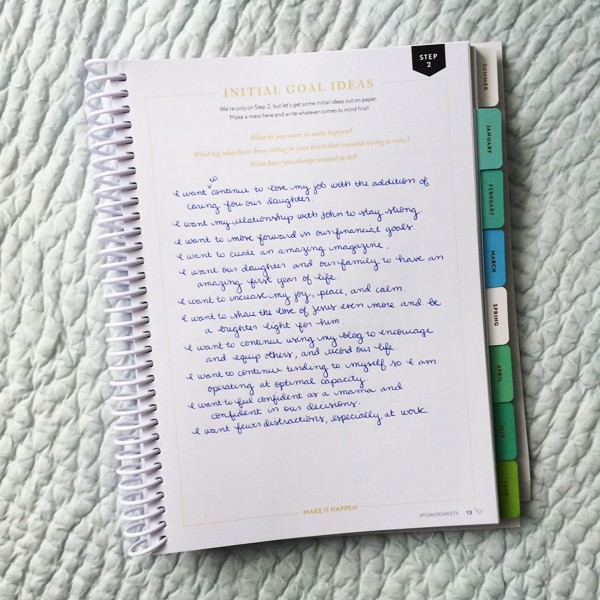 STEP
2
INITIAL GOAL IDEAS
We're only on Step 2, but let's get some initial ideas out on paper.
Make a mess here and write whatever comes to mind first!
What do you want to make happen?
What big ideas have been sitting in your heart that sounded too big to voice?
What have you always wanted to do?
to
I want continue to love my job with the addition of
caring for our daughter.
I want my relationship with John to stay strong.
I want to move forward in our financial goals.
I want to create an amazing magazine.
I want our daughter and our family to have an
amazing first year of life.
I want to increase my joy, peace, and calm.
I want to share the love of Jesus even more and be
a brighter light for him.
I want to continue using my blog to encourage
and equip others, and record our life
I want to continue tending to myself so I am
operating at optimal capacity.
I want to feel confident as a mama and
confident in our decisions.
I want fewer distractions, especially at work.
MAKE IT HAPPEN
#POWERSHEETS 13
SUMMER
JANUARY
FEBRUARY
MARCH
SPRING
APRIL
MAY
JUNE